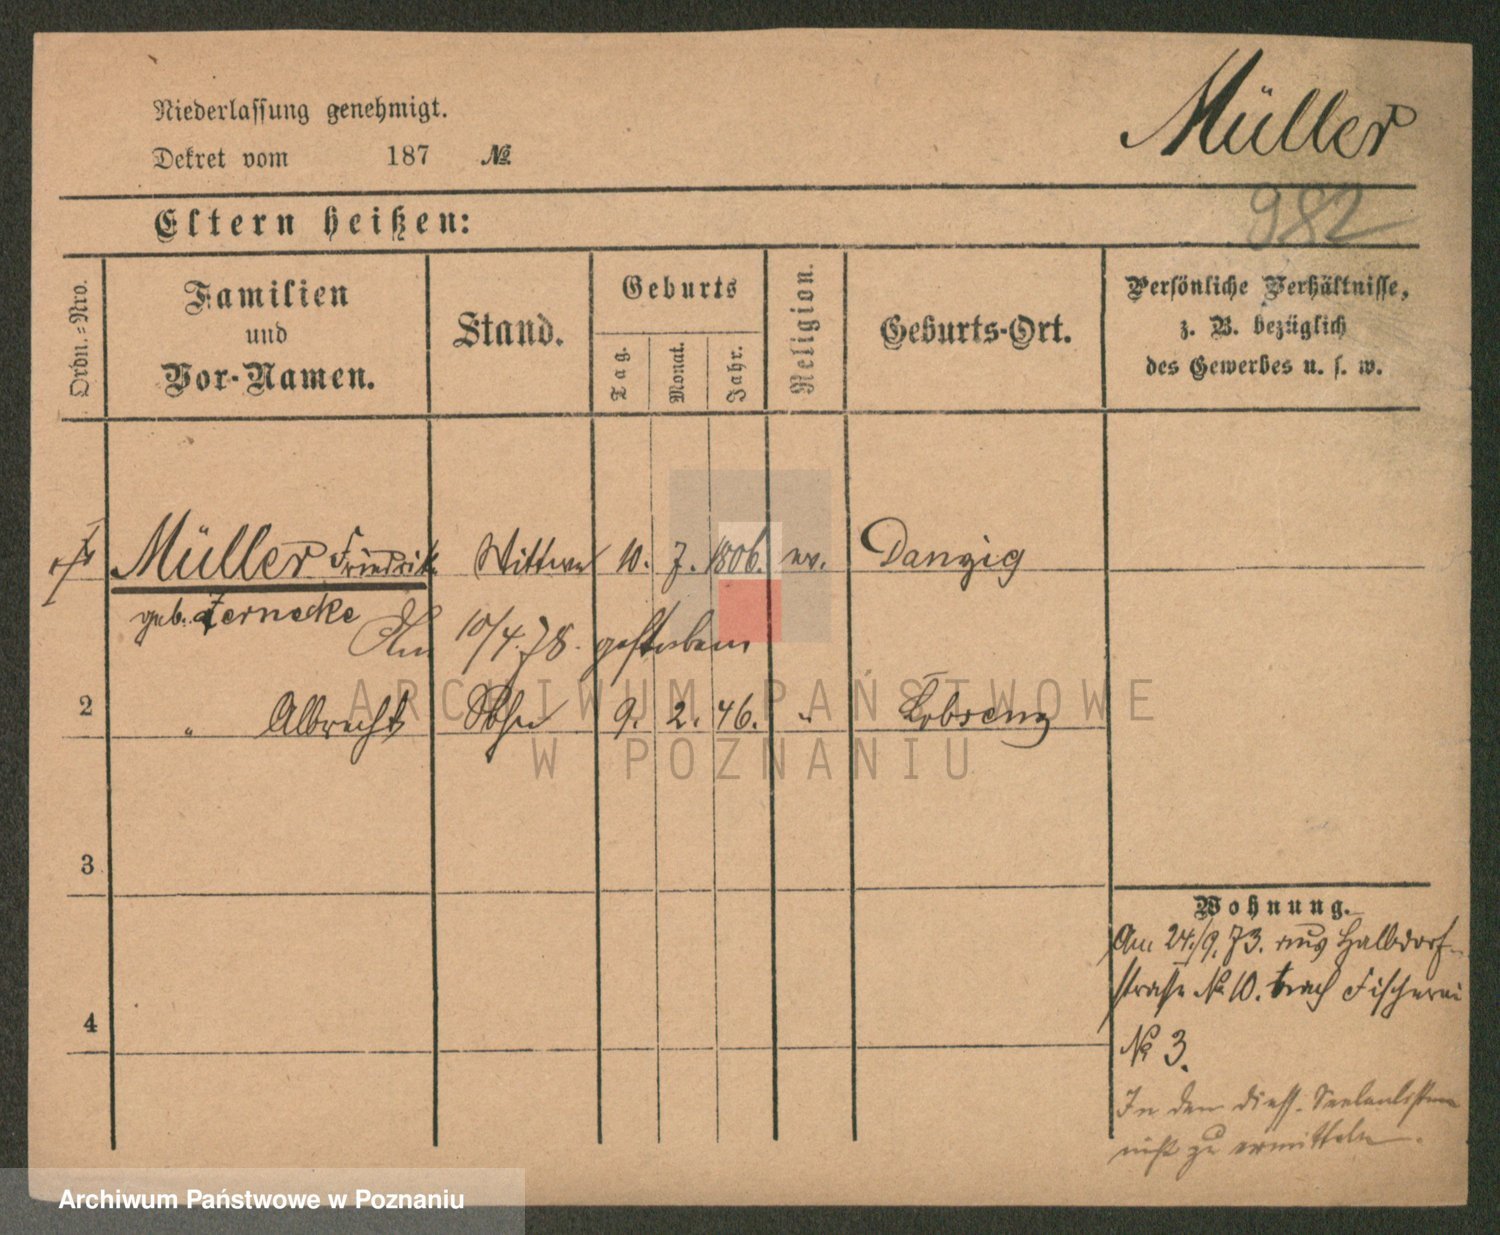 Müller
Niederlassung genehmigt.
Dekret vom 187 №
982
Eltern heißen:
Ordn.-Nro.
Familien
und
Vor-Namen.
Stand.
Geburts
Tag.
Monat.
Jahr.
Religion.
Geburts-Ort.
Persönliche Verhältnisse,
z. B. bezüglich
des Gewerbes u. s. w.
Müller Friedrike Wittwe 10. 7. 1806. ev. Danzig
geb. Zernecke
Am 10/4.78. gestorben
2 " Albrecht Sohn 9. 2. 46. " Lobsenz
ARCHIWUM PAŃSTWOWE
W POZNANIU
3
4
Wohnung.
Am 24./9. 73. aus Halbdorf-
straße № 10. nach Fischerei
№ 3.
In den diess. Seelenlisten
nicht zu ermitteln.
Archiwum Państwowe w Poznaniu